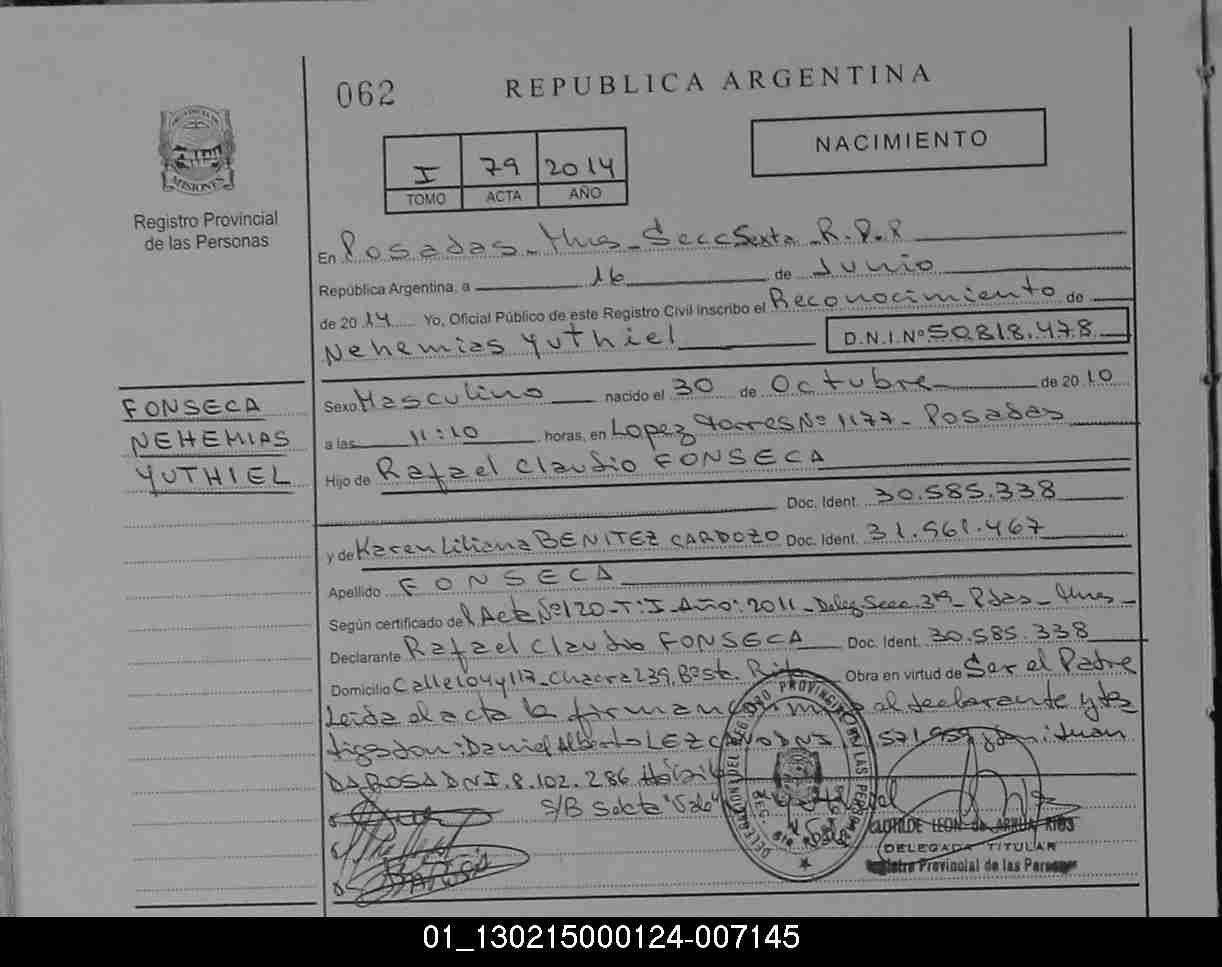 062
REPUBLICA ARGENTINA
NACIMIENTO
I 79 2014
TOMO ACTA AÑO
MISIONES
Registro Provincial
de las Personas
En Posadas - Mns - Secc Sexta R.P.P
República Argentina, a 16 de Junio
de 2014 Yo, Oficial Público de este Registro Civil inscribo el Reconocimiento de
Nehemias Yuthiel D.N.I.Nº 50.818.478
FONSECA
NEHEMIAS
YUTHIEL
Sexo Masculino nacido el 30 de Octubre de 2010
a las 11:10 horas, en Lopez Torres Nº 1177 - Posadas
Hijo de Rafael Claudio FONSECA
Doc. Ident. 30.585.338
y de Karen Liliana BENITEZ CARDOZO Doc. Ident. 31.961.467
Apellido FONSECA
Según certificado de l Acta Nº 120 - T: I - Año: 2011 - Deleg Secc. 3ra - Pdas - Mns -
Declarante Rafael Claudio FONSECA Doc. Ident. 30.585.338
Domicilio Calle 104 y 117 - Chacra 239. Bº Sta. Rita Obra en virtud de Ser el Padre
Leida el acta la firman conmigo el declarante y tes
tigos Don: Daniel Alberto LEZCANO DNI 571.959 y Juan
DAROSA DNI. 8.102.286 Hábil
S/B "Vale"
DELEGACION DEL REGISTRO PROVINCIAL DE LAS PERSONAS
CLOTILDE LEON de RIOS
DELEGADA TITULAR
Registro Provincial de las Personas
01_130215000124-007145